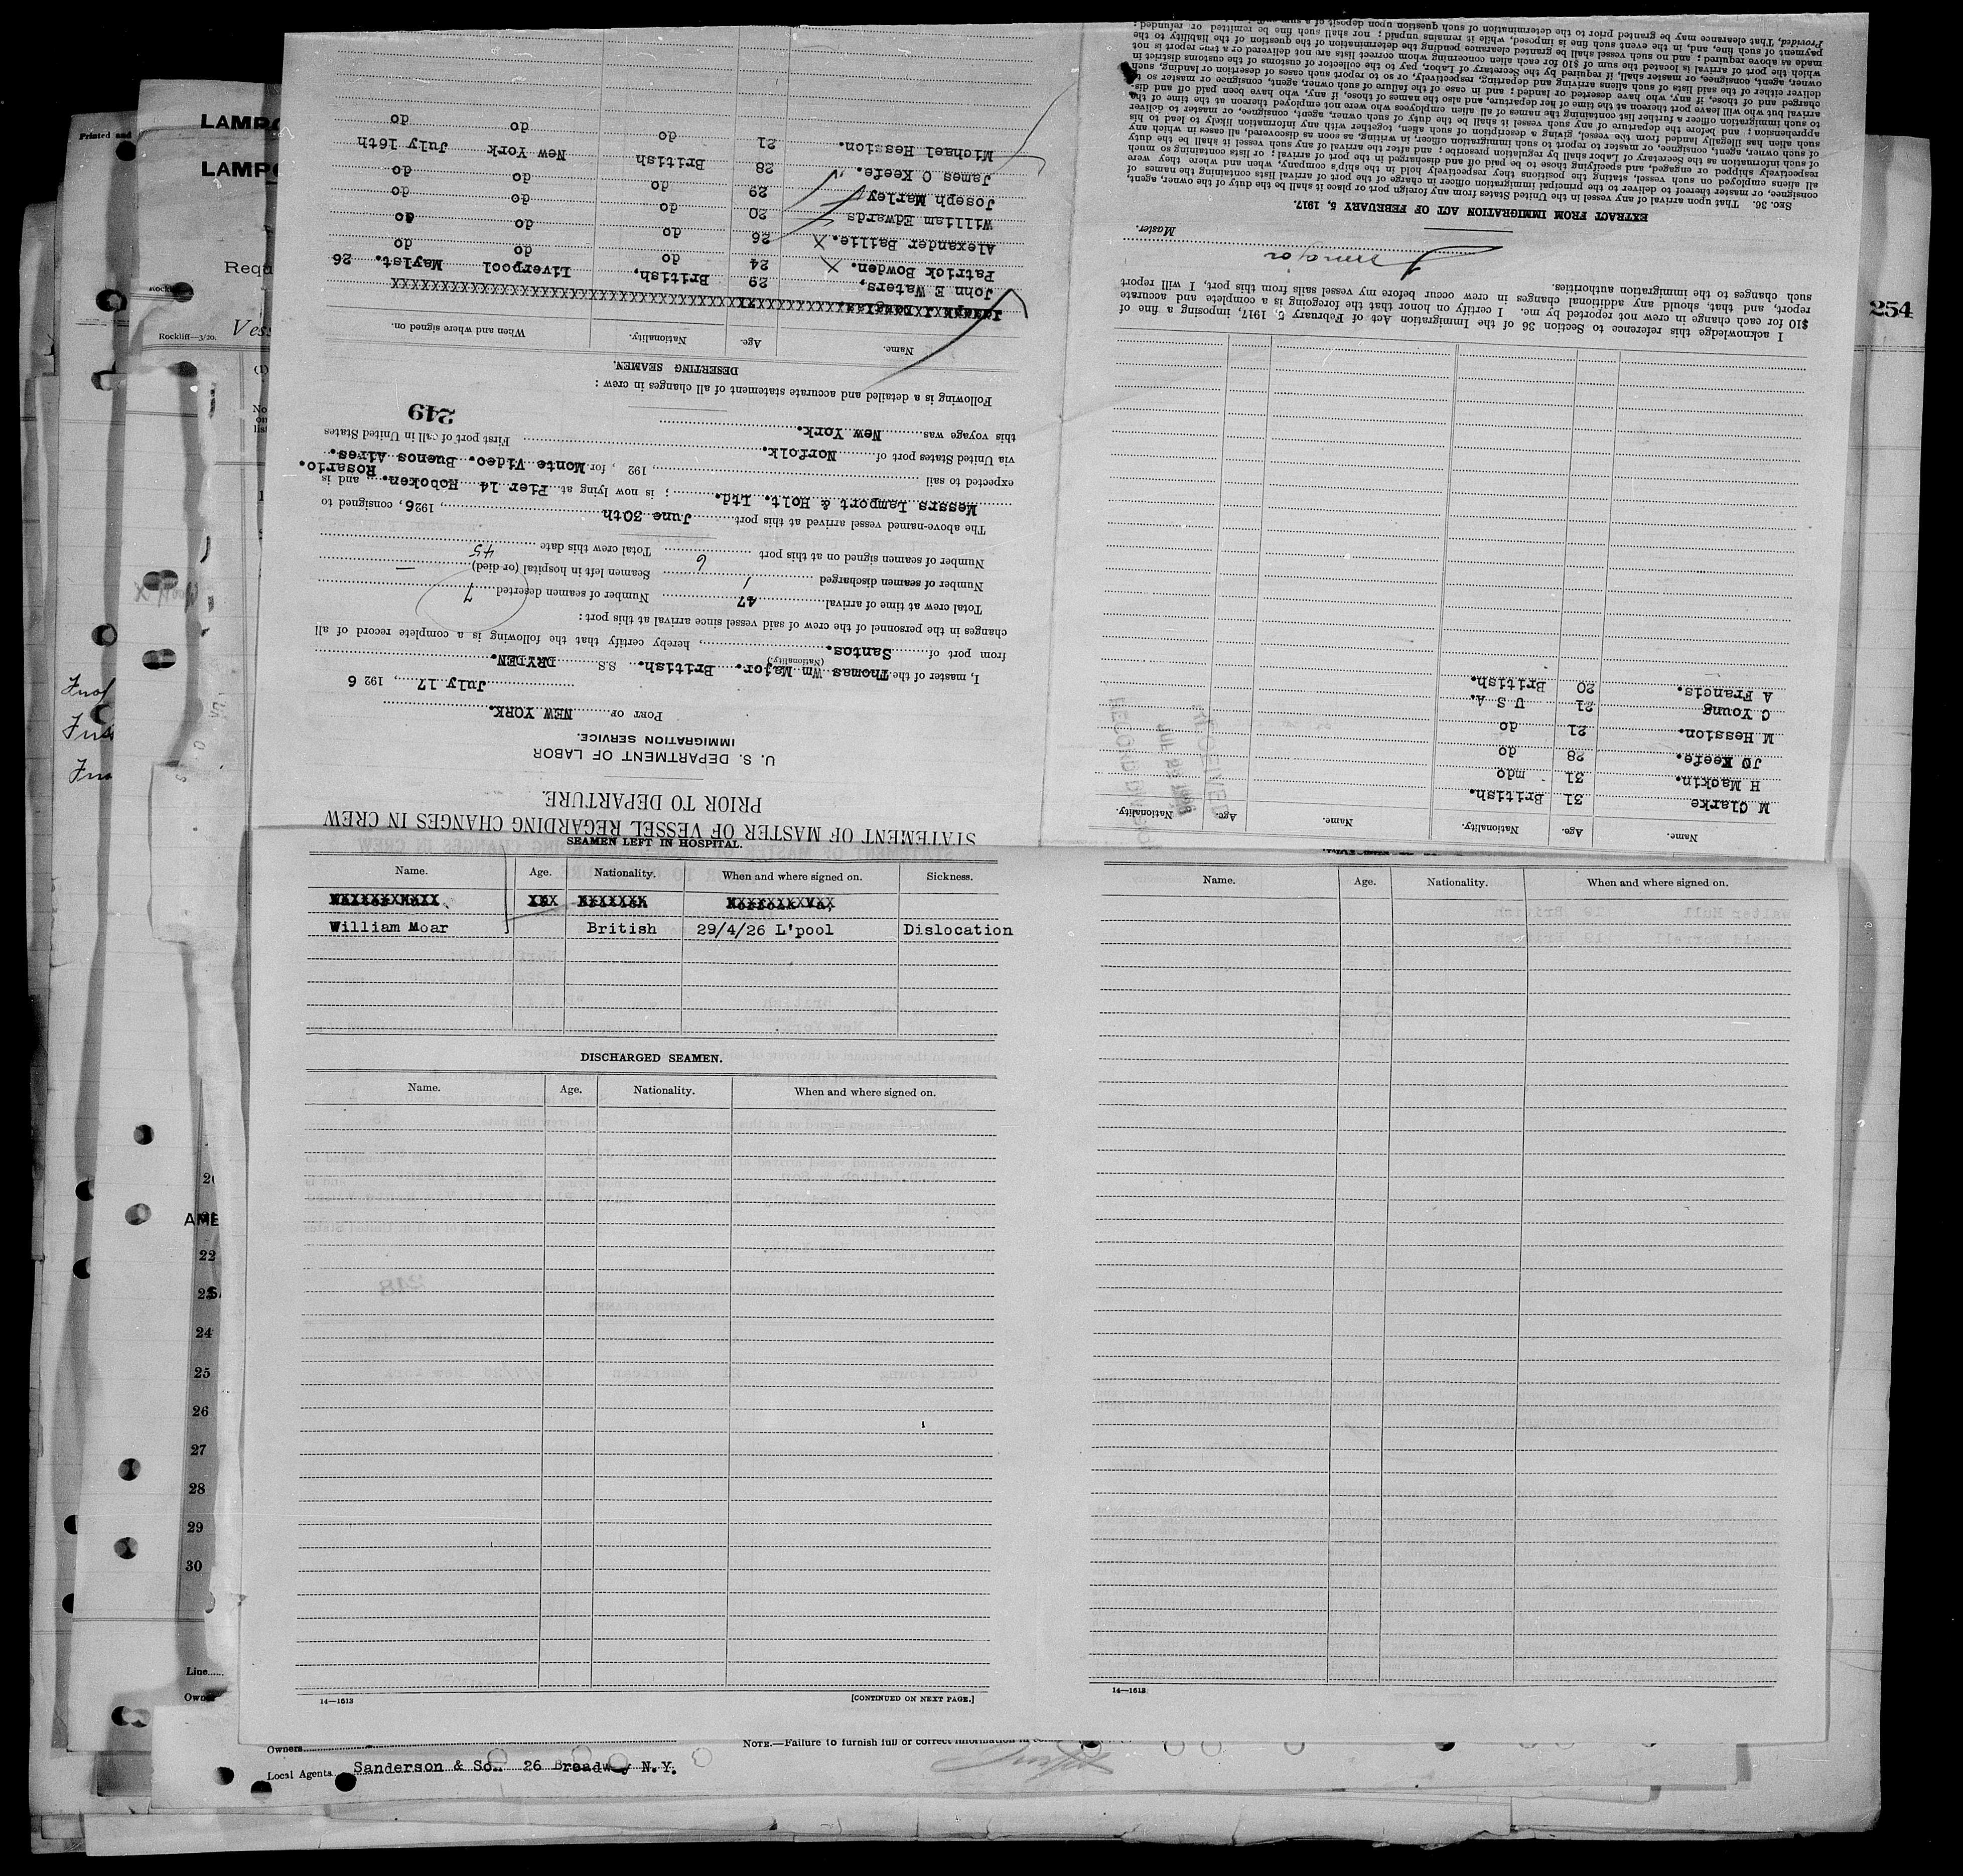 STATEMENT OF MASTER OF VESSEL REGARDING CHANGES IN CREW
PRIOR TO DEPARTURE.
U. S. DEPARTMENT OF LABOR
IMMIGRATION SERVICE.
PORT OF NEW YORK.
July 17, 1926
I, master of the Thomas Wm Major. British. S.S. DRYDEN.
(Nationality)
from port of Santos., hereby certify that the following is a complete record of all
changes in the personnel of the crew of said vessel since arrival at this port:
Total crew at time of arrival 47 Number of seamen deserted 7
Number of seamen discharged 1 Seamen left in hospital (or died) —
Number of seamen signed on at this port 6 Total crew this date 45
The above-named vessel arrived at this port June 30th, 1926, consigned to
Messrs Lamport & Holt. Ltd. ; is now lying at Pier 14 Hoboken. and is
expected to sail , 192 , for Monte Video. Buenos Aires. Rosario.
via United States port of Norfolk. First port of call in United States
this voyage was New York.
249
Following is a detailed and accurate statement of all changes in crew:
DESERTING SEAMEN.
Name. Age. Nationality. When and where signed on.
John E Waters, 29 British, Liverpool May1st. 26
Patrick Bowden. X 24 do do do
Alexander Baillie. X 26 do do do
William Edwards 20 do do do
Joseph Marley 29 do do do
James O Keefe. 28 British New York July 16th
Michael Hession. 21 do do do
Name. Age. Nationality. Name. Age. Nationality.
M Clarke 31 British.
H Mackin. 31 mdo
JO Keefe. 28 do
M Hession. 21 do
C Young 21 U S A.
A Francis. 20 British.
RECEIVED
RECORD DIVISION
I acknowledge this reference to Section 36 of the Immigration Act of February 5, 1917, imposing a fine of
$10 for each change in crew not reported by me. I certify on honor that the foregoing is a complete and accurate
report, and that, should any additional changes in crew occur before my vessel sails from this port, I will report
such changes to the immigration authorities.
Master.
EXTRACT FROM IMMIGRATION ACT OF FEBRUARY 5, 1917.
SEC. 36. That upon arrival of any vessel in the United States from any foreign port or place it shall be the duty of the owner, agent,
consignee, or master thereof to deliver to the principal immigration officer in charge of the port of arrival lists containing the names of
all aliens employed on such vessel, stating the positions they respectively hold in the ship's company, when and where they were
respectively shipped or engaged, and specifying those to be paid off and discharged in the port of arrival; or lists containing so much
of such information as the Secretary of Labor shall by regulation prescribe; and after the arrival of any such vessel it shall be the duty
of such owner, agent, consignee, or master to report to such immigration officer, in writing, as soon as discovered, all cases in which any
such alien has illegally landed from the vessel, giving a description of such alien, together with any information likely to lead to his
apprehension; and before the departure of any such vessel it shall be the duty of such owner, agent, consignee, or master to deliver
to such immigration officer a further list containing the names of all alien employees who were not employed thereon at the time of the
arrival but who will leave port thereon at the time of her departure, and also the names of those, if any, who have been paid off and dis-
charged and of those, if any, who have deserted or landed; and in case of the failure of such owner, agent, consignee or master so to
deliver either of the said lists of such aliens arriving and departing, respectively, or so to report such cases of desertion or landing, such
owner, agent, consignee, or master shall, if required by the Secretary of Labor, pay to the collector of customs of the customs district in
which the port of arrival is located the sum of $10 for each alien concerning whom correct lists are not delivered or a true report is not
made as above required; and no such vessel shall be granted clearance pending the determination of the question of the liability to the
payment of such fine, and, in the event such fine is imposed, while it remains unpaid; nor shall such fine be remitted or refunded:
Provided, That clearance may be granted prior to the determination of such question upon deposit of a sum
SEAMEN LEFT IN HOSPITAL.
Name. Age. Nationality. When and where signed on. Sickness.
William Moar British 29/4/26 L'pool Dislocation
DISCHARGED SEAMEN.
Name. Age. Nationality. When and where signed on.
14—1613
[CONTINUED ON NEXT PAGE.]
Name. Age. Nationality. When and where signed on.
14—1613
Printed and
LAMPO
LAMPO
Requ
Rockliff—3/20.
Vess
254
AME
22
24
25
26
27
28
29
30
Line
Owner
Owners
NOTE.—Failure to furnish full or correct information in
Local Agents Sanderson & So.. 26 Broadway N.Y.